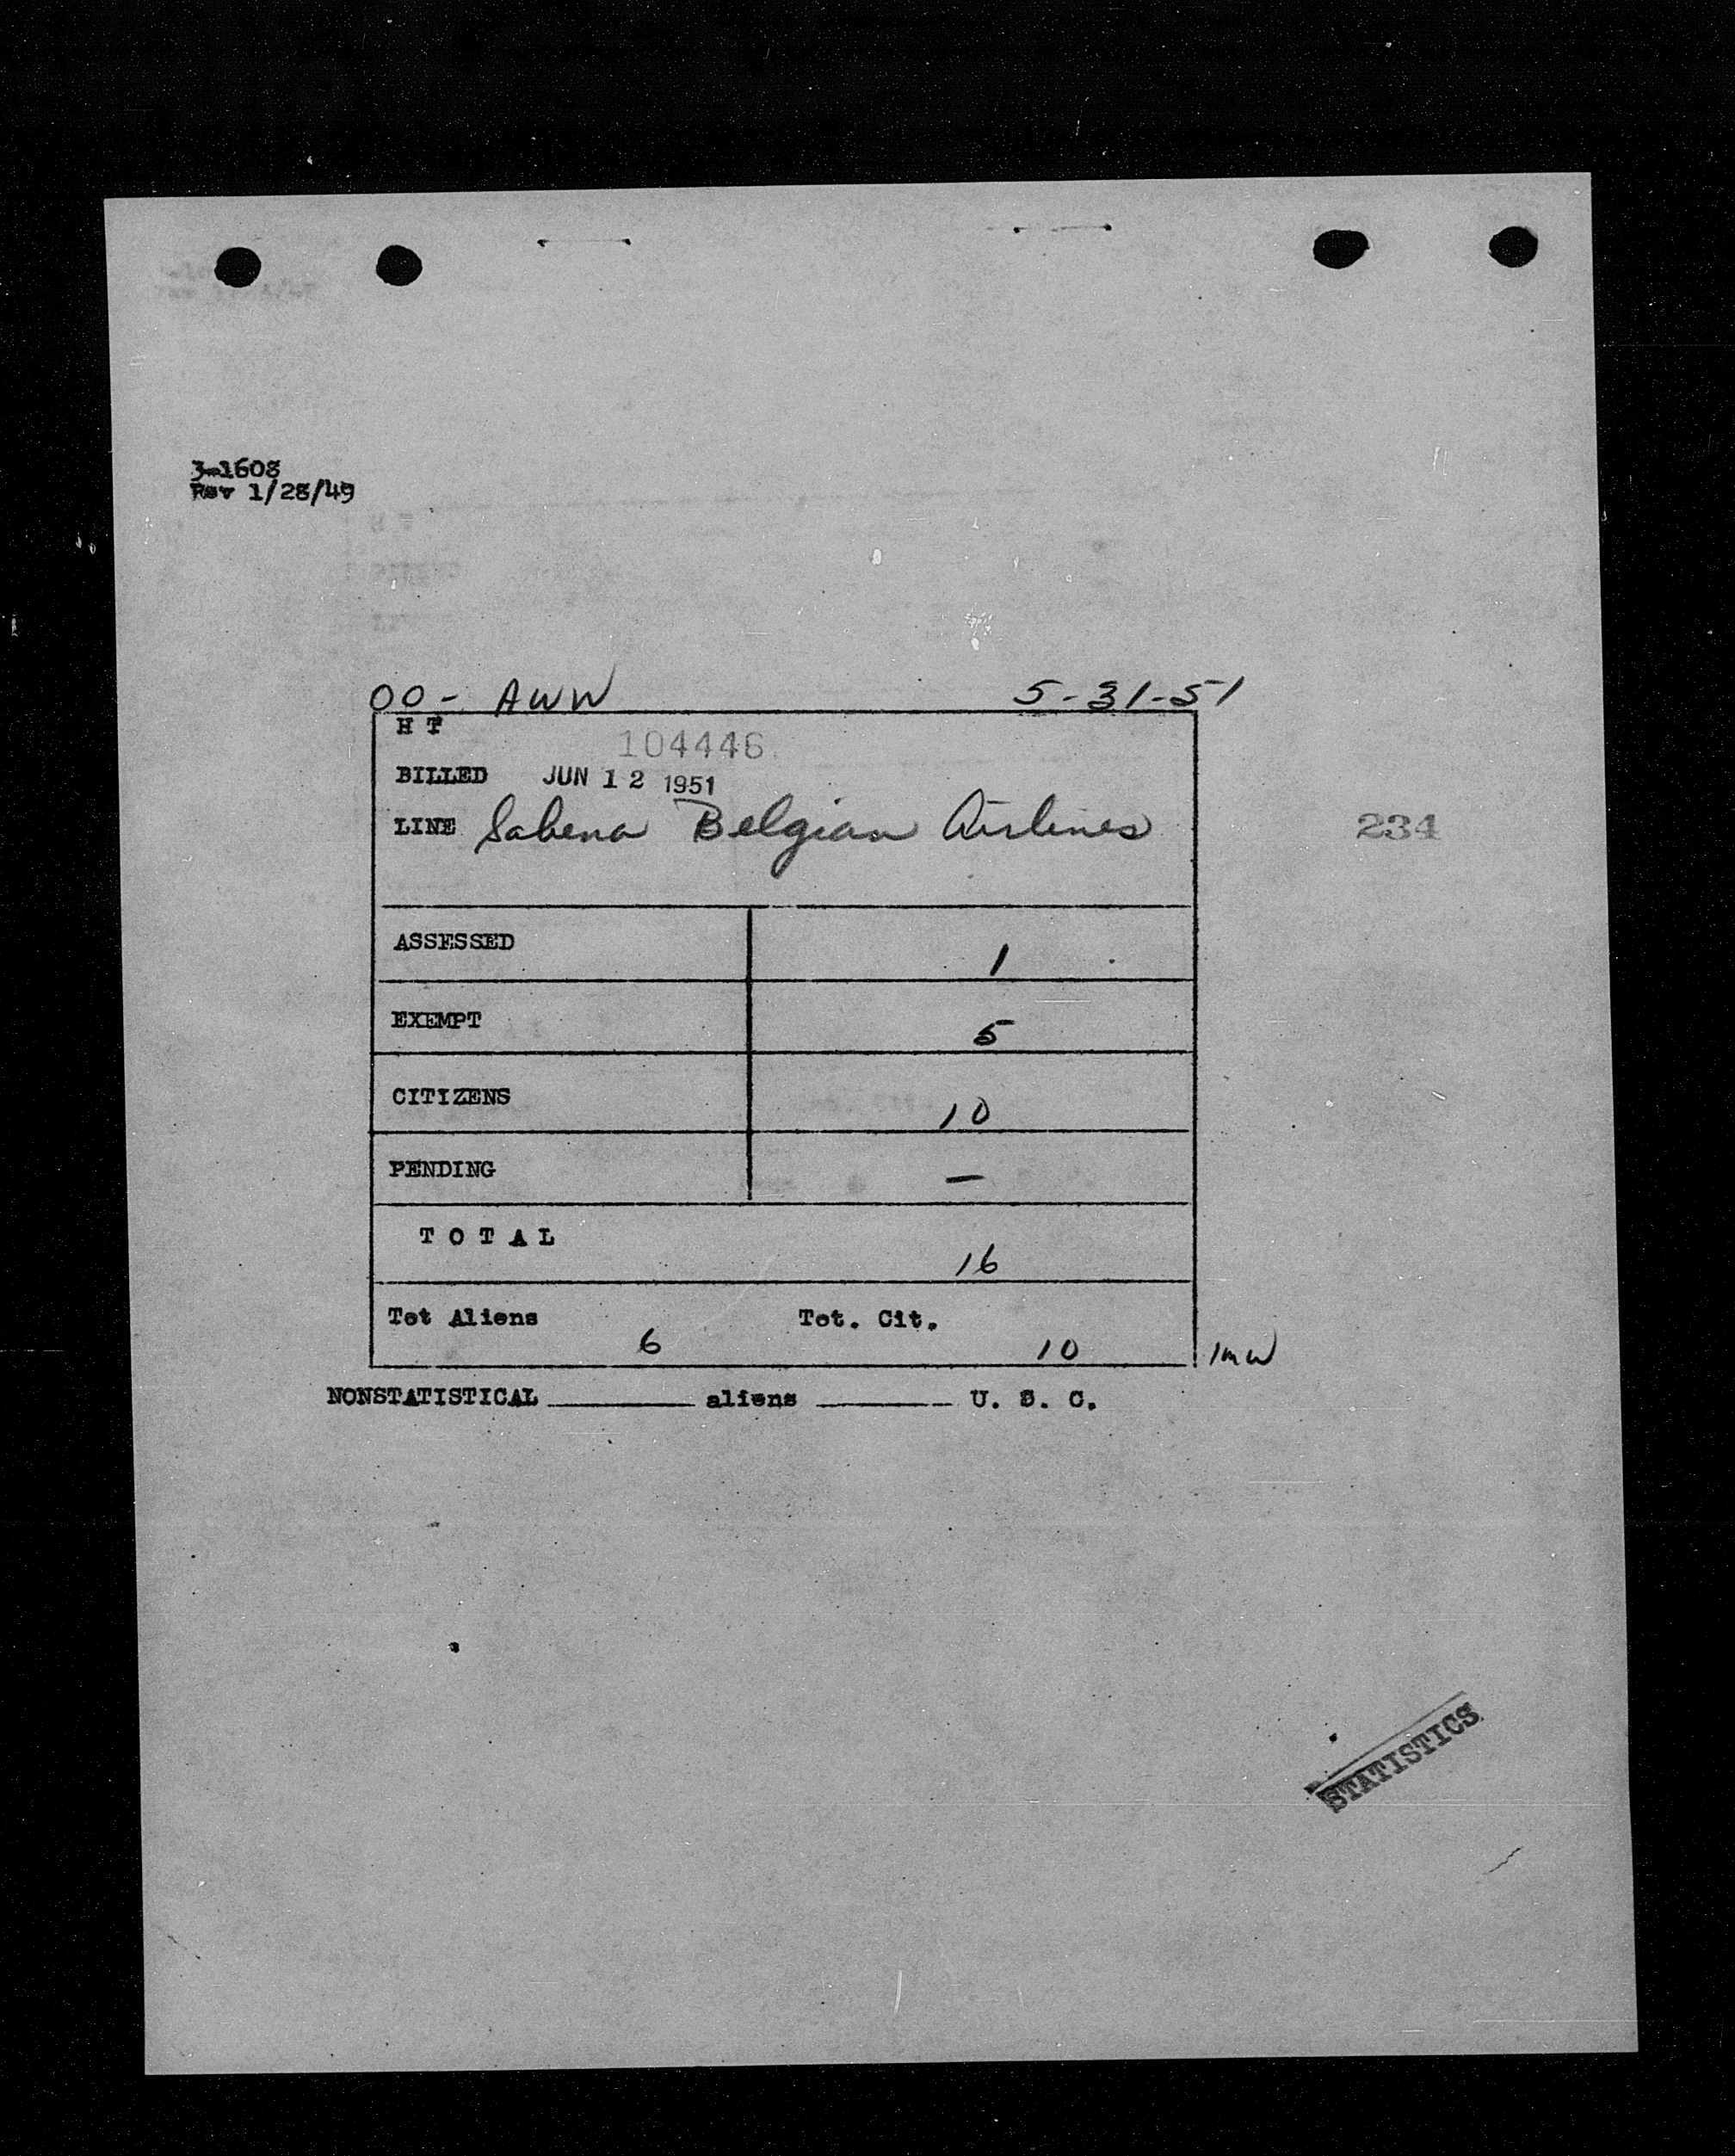 3-1608
Rev 1/28/49
OO- AWW 5-31-51
H T
104446
BILLED JUN 12 1951
LINE Sabena Belgian Airlines
234
ASSESSED 1
EXEMPT 5
CITIZENS 10
PENDING —
T O T A L 16
Tot Aliens 6 Tot. Cit. 10
NONSTATISTICAL ________ aliens ________ U. S. C.
STATISTICS